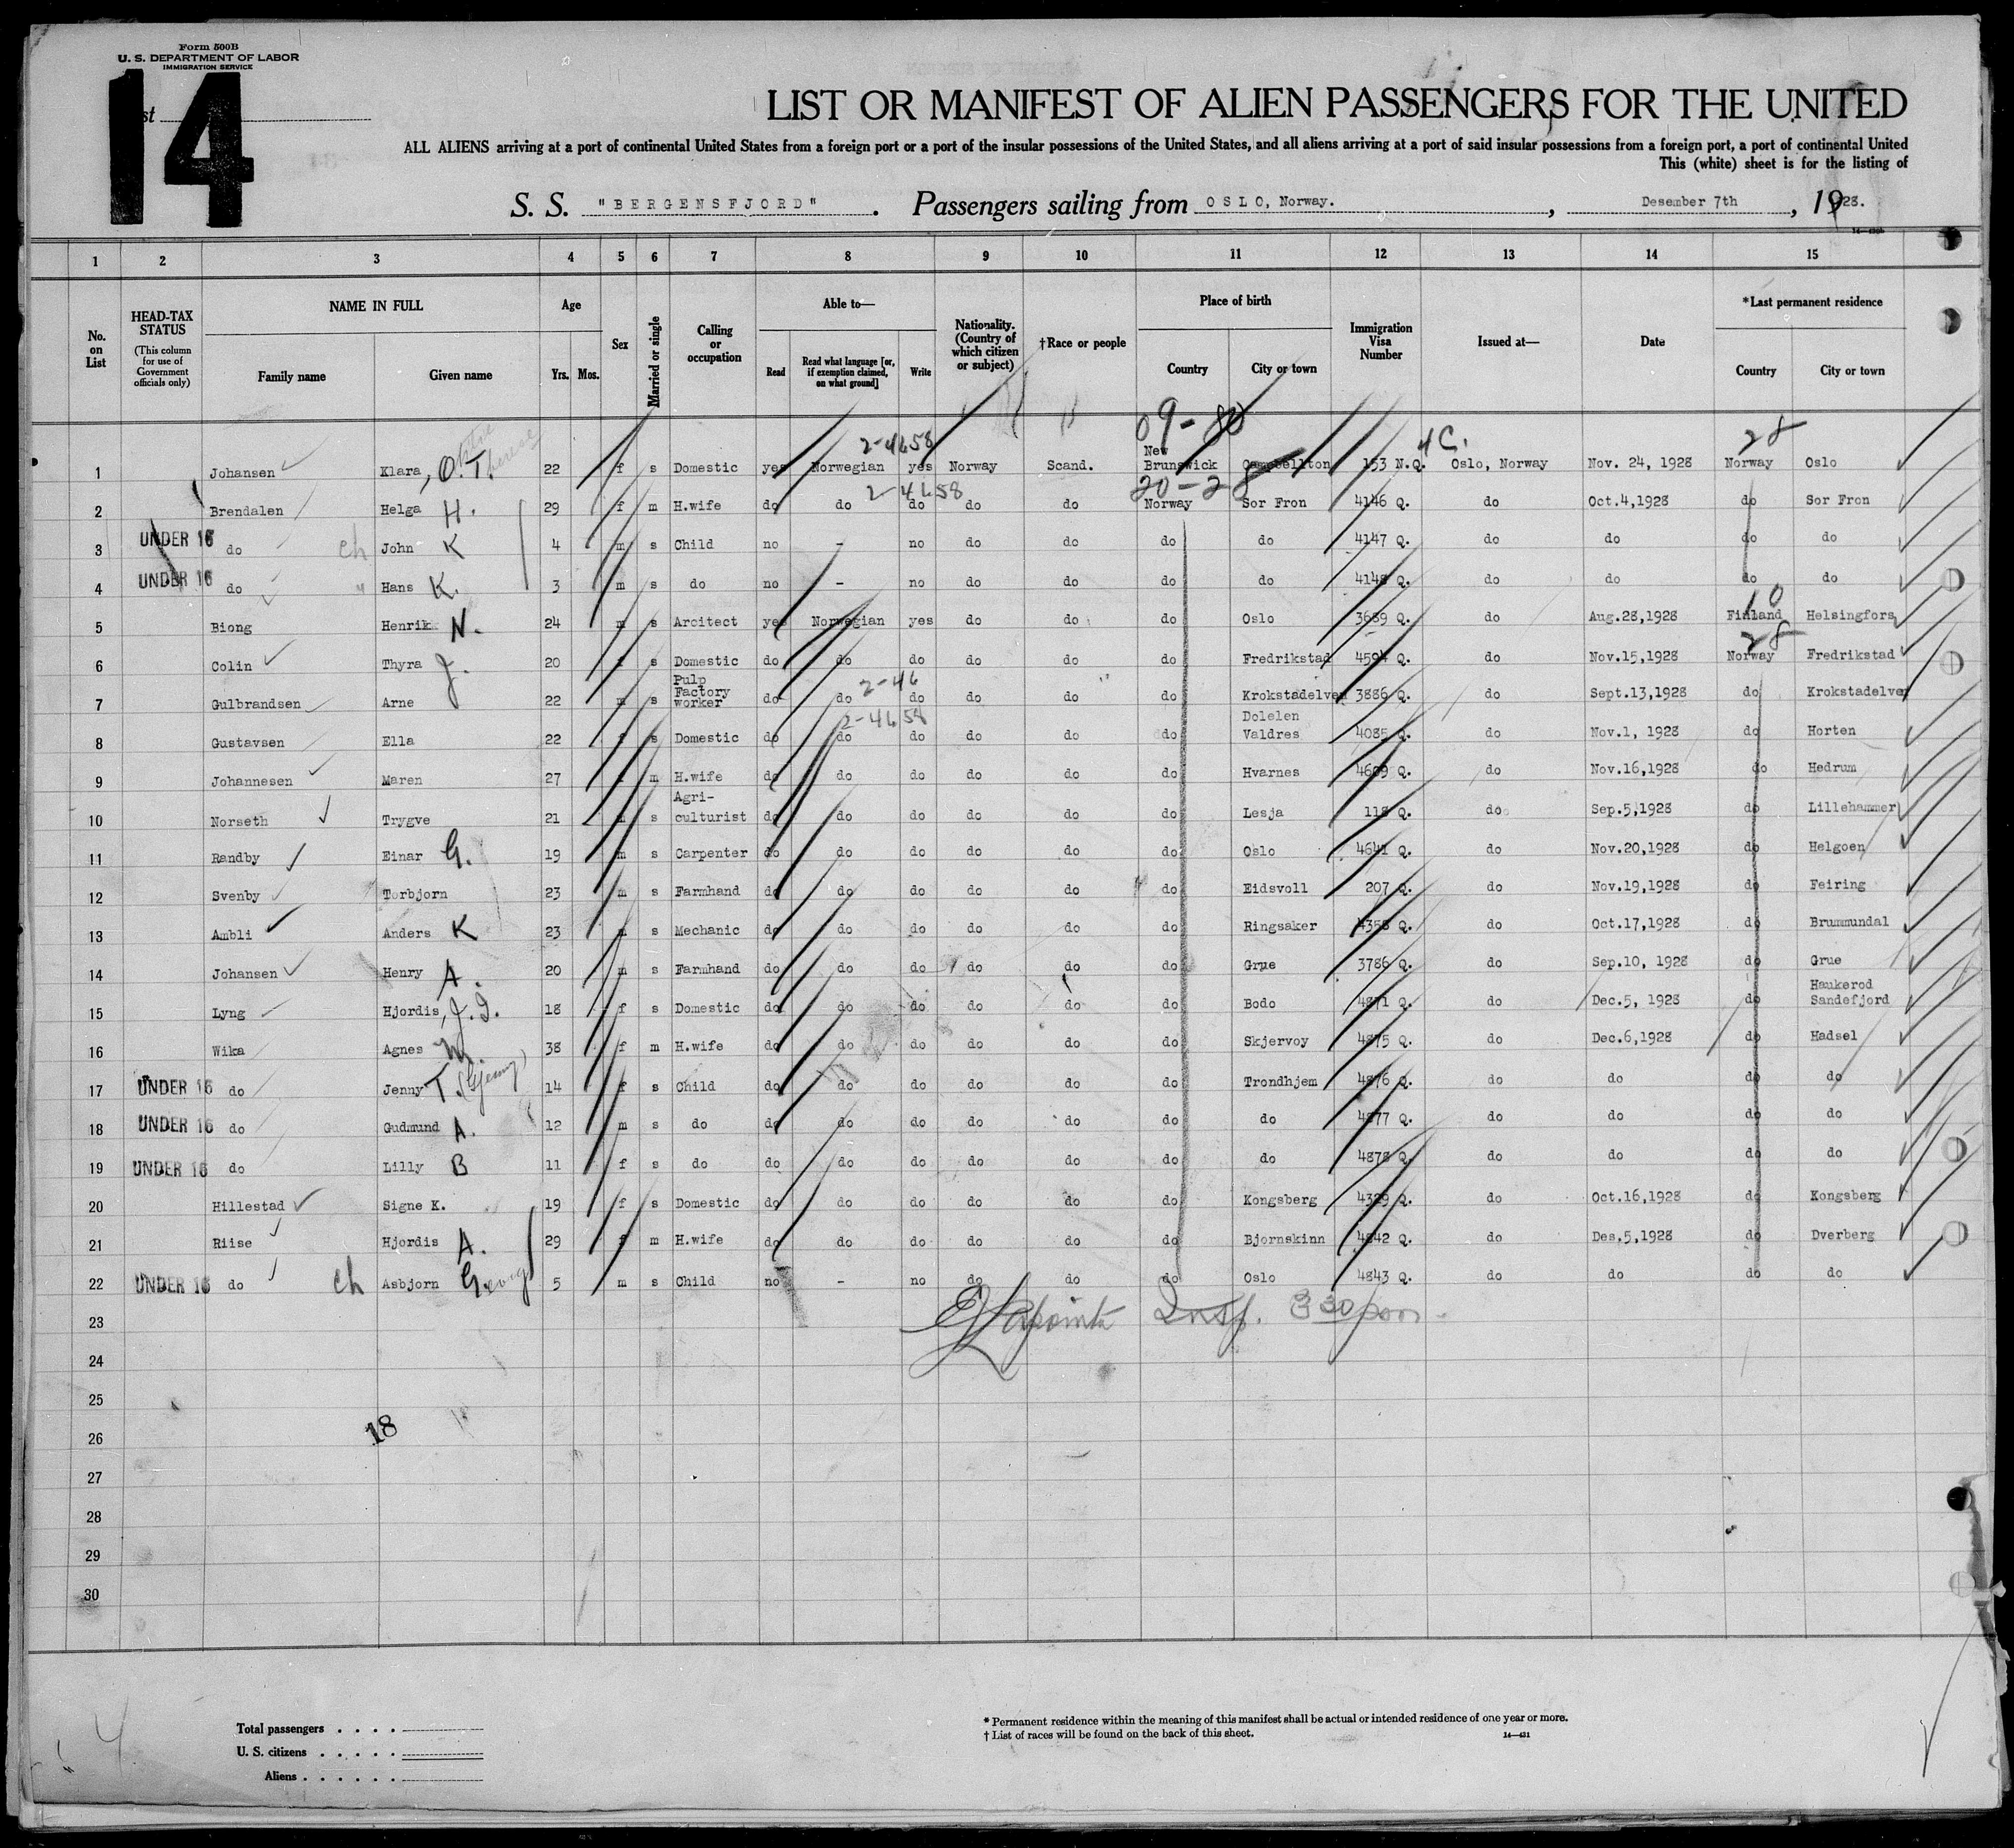 Form 500B
U. S. DEPARTMENT OF LABOR
IMMIGRATION SERVICE
14
LIST OR MANIFEST OF ALIEN PASSENGERS FOR THE UNITED
ALL ALIENS arriving at a port of continental United States from a foreign port or a port of the insular possessions of the United States, and all aliens arriving at a port of said insular possessions from a foreign port, a port of continental United
This (white) sheet is for the listing of
S. S. "BERGENSFJORD". Passengers sailing from OSLO, Norway. , Desember 7th , 1928.
1 2 3 4 5 6 7 8 9 10 11 12 13 14 15
No. on List
HEAD-TAX STATUS (This column for use of Government officials only)
NAME IN FULL
Family name Given name
Age
Yrs. Mos.
Sex
Married or single
Calling or occupation
Able to—
Read Read what language [or, if exemption claimed, on what ground] Write
Nationality. (Country of which citizen or subject)
†Race or people
Place of birth
Country City or town
Immigration Visa Number
Issued at—
Date
*Last permanent residence
Country City or town
09-80
2-4658 4C. 28
1 Johansen Klara, O.T. 22 f s Domestic yes Norwegian yes Norway Scand. New Brunswick Campbellton 153 N.Q. Oslo, Norway Nov. 24, 1928 Norway Oslo
2-4658 20-28
2 Brendalen Helga H. 29 f m H.wife do do do do do Norway Sor Fron 4146 Q. do Oct.4,1928 do Sor Fron
3 UNDER 16 do ch John K 4 m s Child no - no do do do do 4147 Q. do do do do
4 UNDER 16 do " Hans K. 3 m s do no - no do do do do 4148 Q. do do do do
10
5 Biong Henrik N. 24 m s Arcitect yes Norwegian yes do do do Oslo 3689 Q. do Aug.28,1928 Finland Helsingfors
28
6 Colin Thyra J. 20 f s Domestic do do do do do do Fredrikstad 4594 Q. do Nov.15,1928 Norway Fredrikstad
2-46
7 Gulbrandsen Arne 22 m s Pulp Factory worker do do do do do do Krokstadelven 3886 Q. do Sept.13,1928 do Krokstadelven
2-4658
8 Gustavsen Ella 22 f s Domestic do do do do do do Dolelen Valdres 4085 Q. do Nov.1, 1928 do Horten
9 Johannesen Maren 27 f m H.wife do do do do do do Hvarnes 4609 Q. do Nov.16,1928 do Hedrum
10 Norseth Trygve 21 s Agri-culturist do do do do do do Lesja 118 Q. do Sep.5,1928 do Lillehammer
11 Randby Einar G. 19 m s Carpenter do do do do do do Oslo 4641 Q. do Nov.20,1928 do Helgoen
12 Svenby Torbjorn 23 m s Farmhand do do do do do do Eidsvoll 207 Q. do Nov.19,1928 do Feiring
13 Ambli Anders K 23 m s Mechanic do do do do do do Ringsaker 4358 Q. do Oct.17,1928 do Brummundal
14 Johansen Henry A. 20 m s Farmhand do do do do do do Grue 3786 Q. do Sep.10, 1928 do Grue
15 Lyng Hjordis, J. J. 18 f s Domestic do do do do do do Bodo 4871 Q. do Dec.5, 1928 do Haukerod Sandefjord
16 Wika Agnes M. 38 f m H.wife do do do do do do Skjervoy 4875 Q. do Dec.6,1928 do Hadsel
17 UNDER 16 do Jenny T. (Gjenny) 14 f s Child do do do do do do Trondhjem 4876 Q. do do do do
18 UNDER 16 do Gudmund A. 12 m s do do do do do do do do 4877 Q. do do do do
19 UNDER 16 do Lilly B 11 f s do do do do do do do do 4878 Q. do do do do
20 Hillestad Signe K. 19 f s Domestic do do do do do do Kongsberg 4329 Q. do Oct.16,1928 do Kongsberg
21 Riise Hjordis A. 29 f m H.wife do do do do do do Bjornskinn 4842 Q. do Des.5,1928 do Dverberg
22 UNDER 16 do ch Asbjorn Georg 5 m s Child no - no do do do Oslo 4843 Q. do do do do
23 Lapointe Insp. 3 30 pm
24
25
26
18
27
28
29
30
Total passengers . . . .
U. S. citizens . . . . .
Aliens . . . . . .
* Permanent residence within the meaning of this manifest shall be actual or intended residence of one year or more.
† List of races will be found on the back of this sheet.
14—431